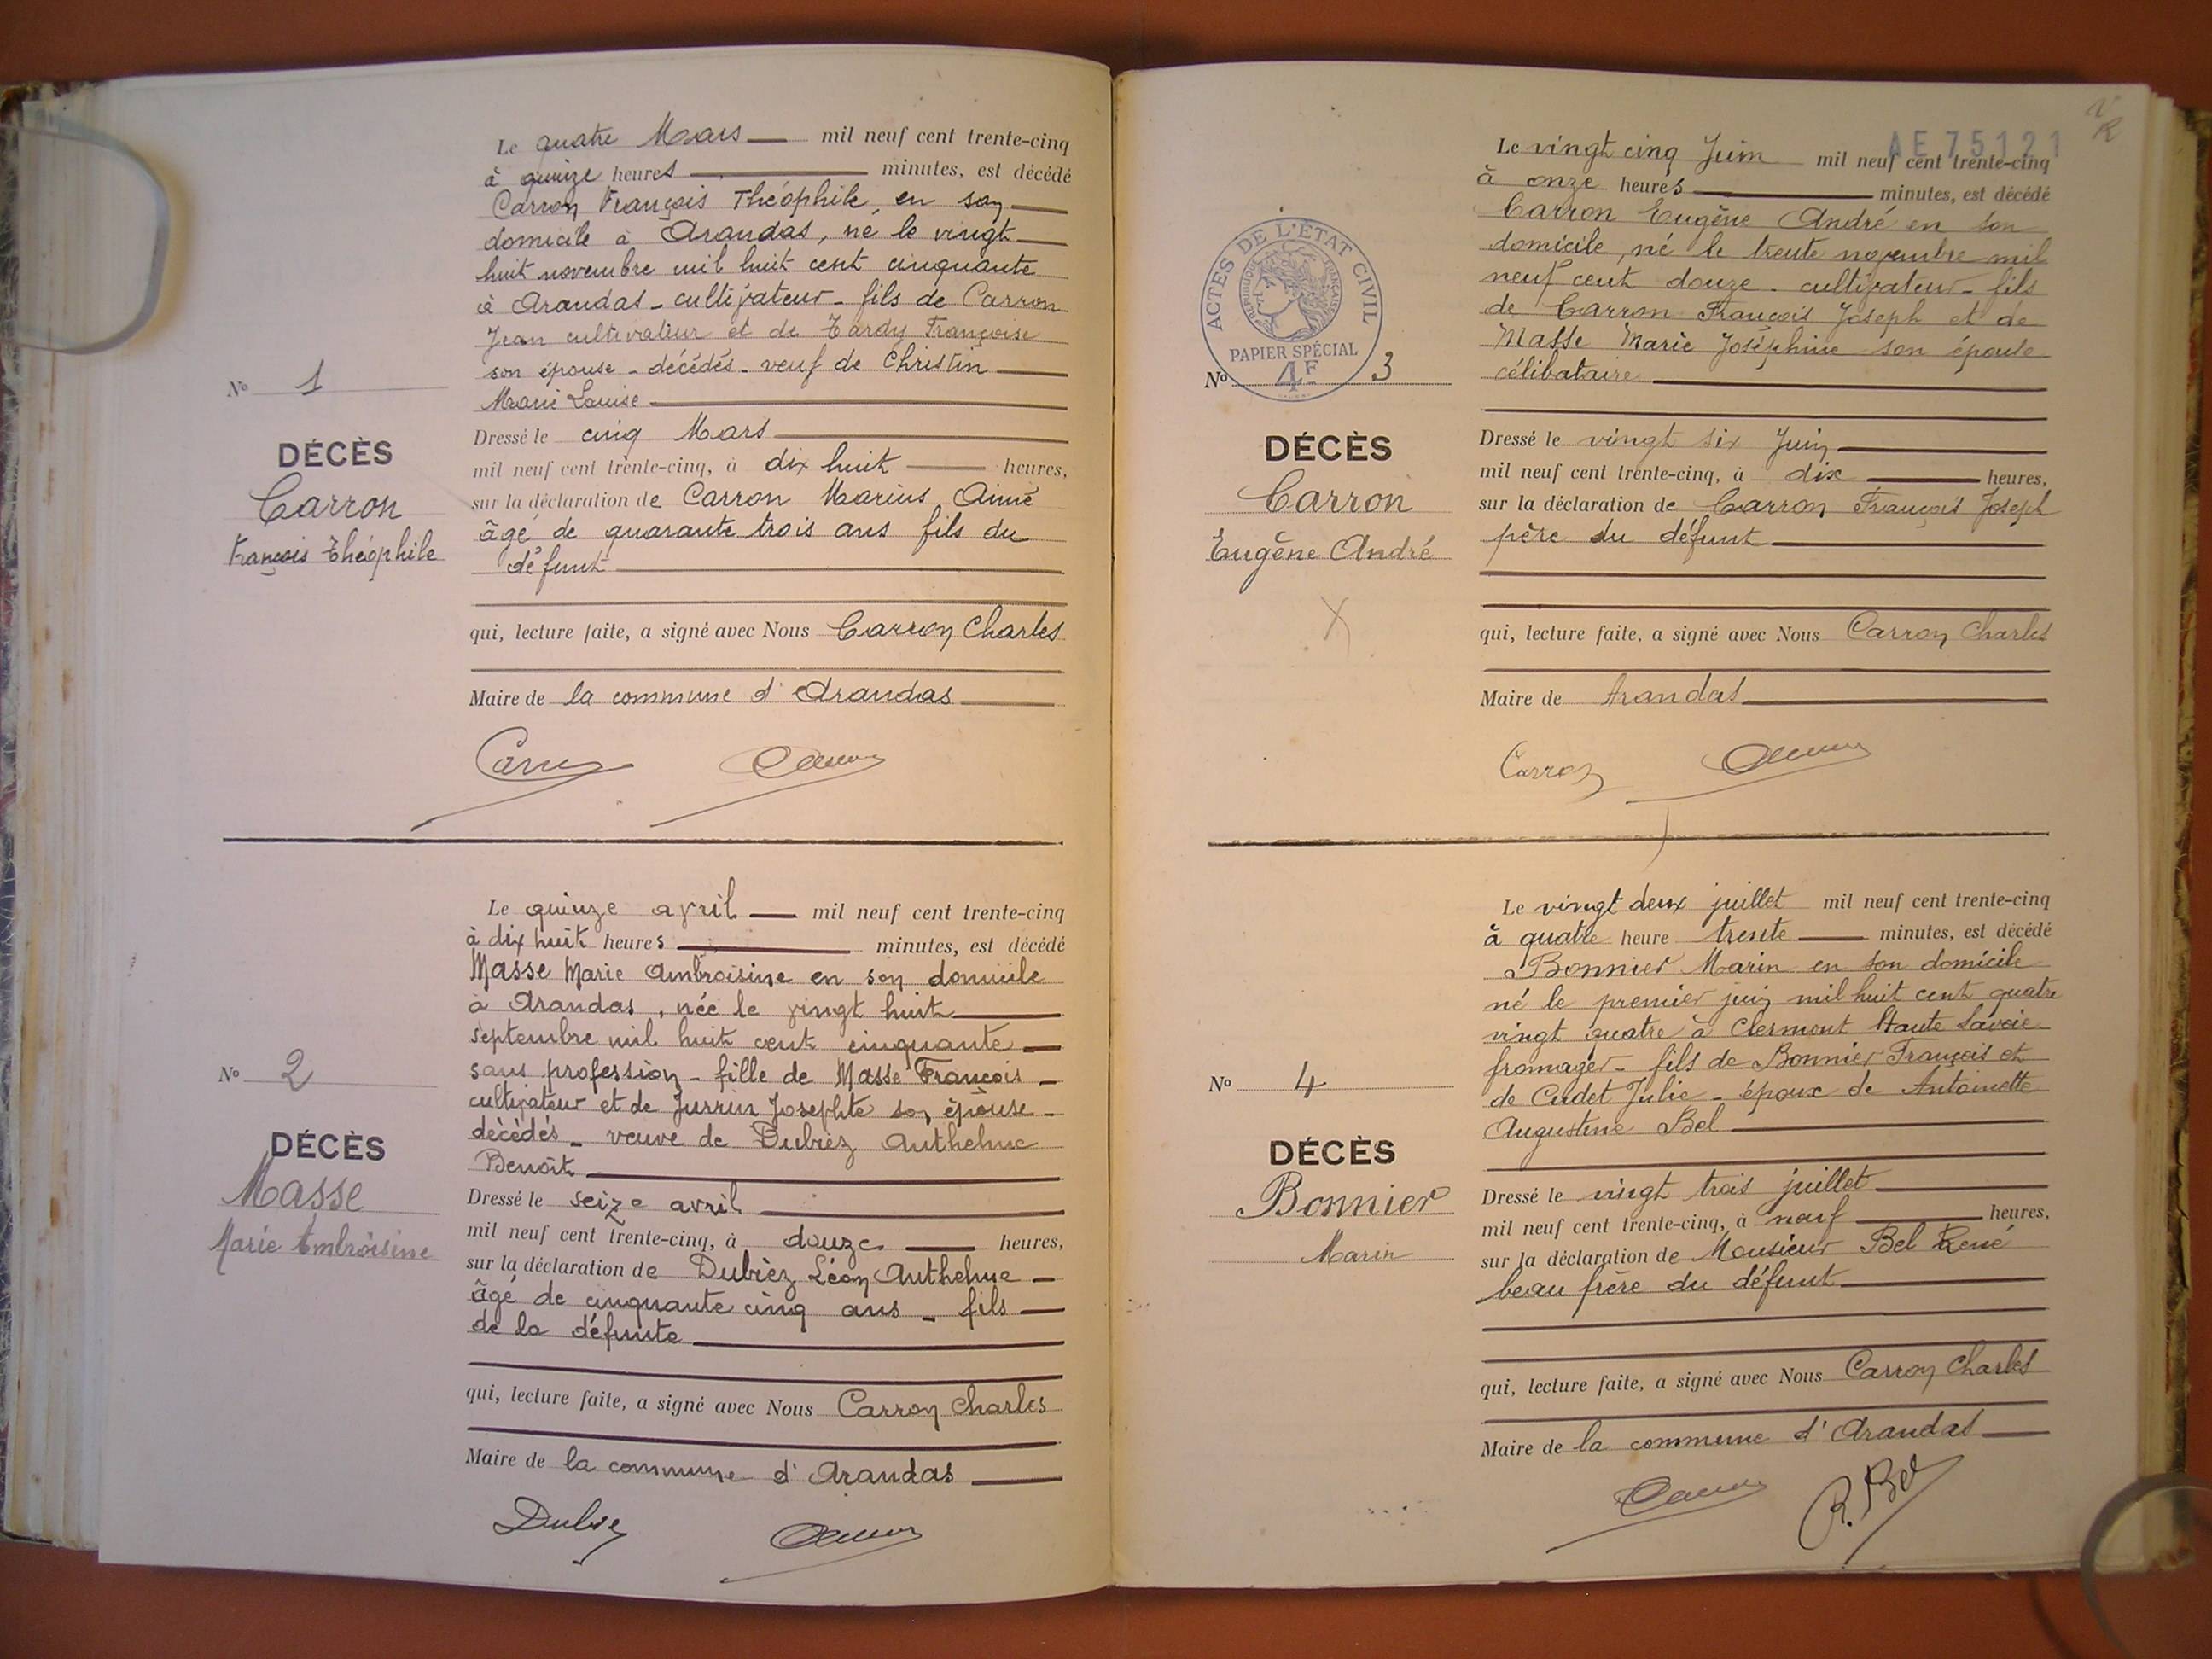 Le quatre Mars mil neuf cent trente-cinq
à quinze heures minutes, est décédé
Carron François Théophile, en son
domicile à Arandas, né le vingt
huit novembre mil huit cent cinquante
à Arandas - cultivateur - fils de Carron
Jean cultivateur et de Tardy Françoise
son épouse - décédés - veuf de Christin
Marie Louise
Nº 1
DÉCÈS
Carron
François Théophile
Dressé le cinq Mars
mil neuf cent trente-cinq, à dix huit heures,
sur la déclaration de Carron Marius Aimé
âgé de quarante trois ans fils du
défunt
qui, lecture faite, a signé avec Nous Carron Charles
Maire de la commune d'Arandas
Le quinze avril mil neuf cent trente-cinq
à dix huit heures minutes, est décédé
Masse Marie Ambroisine en son domicile
à Arandas, née le vingt huit
septembre mil huit cent cinquante
sans profession - fille de Masse François
cultivateur et de Juvrin Josephte son épouse
décédés - veuve de Dubiez Anthelme
Benoît
Nº 2
DÉCÈS
Masse
Marie Ambroisine
Dressé le seize avril
mil neuf cent trente-cinq, à douze heures,
sur la déclaration de Dubiez Léon Anthelme
âgé de cinquante cinq ans - fils
de la défunte
qui, lecture faite, a signé avec Nous Carron Charles
Maire de la commune d'Arandas
AE 75121
Le vingt cinq Juin mil neuf cent trente-cinq
à onze heures minutes, est décédé
Carron Eugène André en son
domicile, né le trente novembre mil
neuf cent douze - cultivateur - fils
de Carron François Joseph et de
Masse Marie Joséphine son épouse
célibataire
ACTES DE L'ÉTAT CIVIL
RÉPUBLIQUE FRANÇAISE
PAPIER SPÉCIAL
4F
Nº 3
DÉCÈS
Carron
Eugène André
Dressé le vingt six Juin
mil neuf cent trente-cinq, à dix heures,
sur la déclaration de Carron François Joseph
père du défunt
qui, lecture faite, a signé avec Nous Carron Charles
Maire de Arandas
Carron
Le vingt deux juillet mil neuf cent trente-cinq
à quatre heure trente minutes, est décédé
Bonnier Marin en son domicile
né le premier juin mil huit cent quatre
vingt quatre à Clermont Haute Savoie
fromager - fils de Bonnier François et
de Cudet Julie - époux de Antoinette
Augustine Bel
Nº 4
DÉCÈS
Bonnier
Marin
Dressé le vingt trois juillet
mil neuf cent trente-cinq, à neuf heures,
sur la déclaration de Monsieur Bel René
beau frère du défunt
qui, lecture faite, a signé avec Nous Carron Charles
Maire de la commune d'Arandas
R. Bel